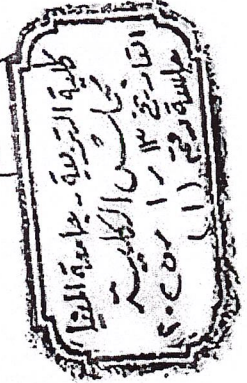 كلية التربية - جامعة
مجلس الكلية
التاريخ ١٣ / ١ / ٢٠٢٥
جلسة رقم (١)